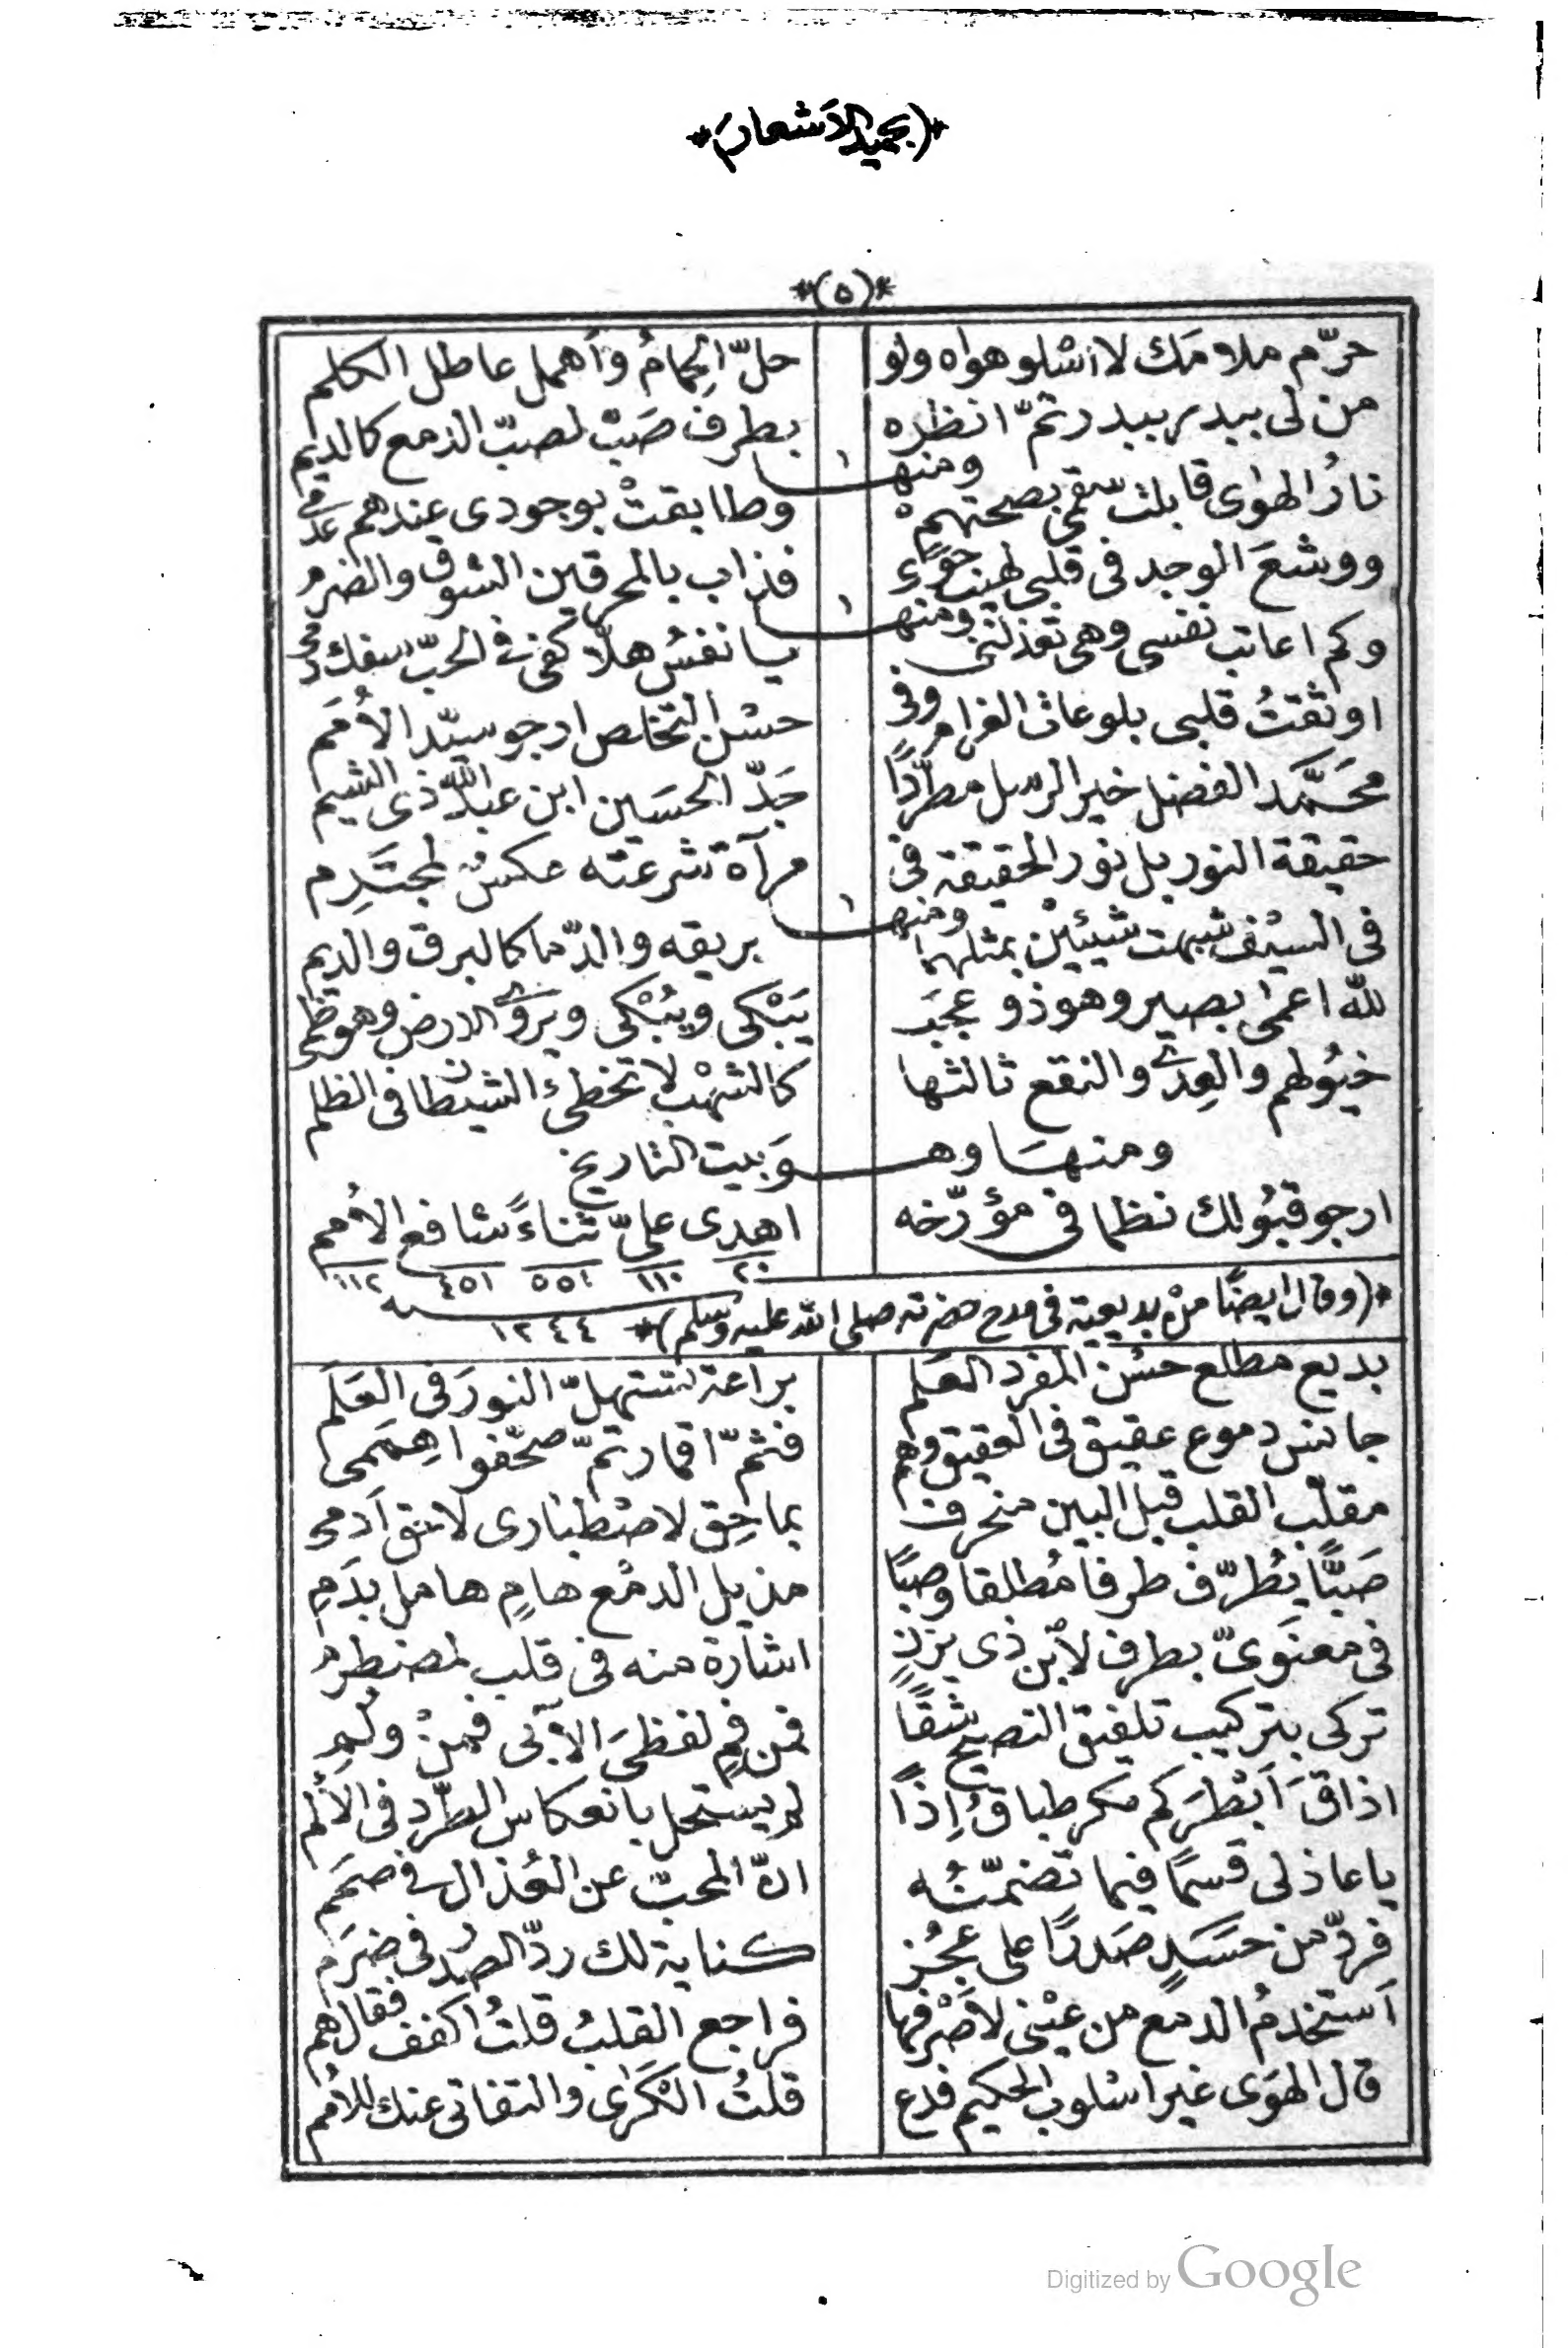 *(بحميد الاشعار)*
*(٥)*
حرّم ملامَك لا اسْلو هواه ولو حلّ الحِمامُ وأهمل عاطل الكلم
من لى ببدر ببدر تمّ انظره بطرف صَبّ لصبّ الدمع كالديم
ومنها
نارُ الهوٰى قابلت سقمى بصحتهم وطابقتْ بوجودى عندهم عدمى
ووشعَ الوجد فى قلبى لهيب جوًى فذاب بالمحرقين الشوق والضرم
ومنها
وكم اعاتب نفسى وهى تعذلنى يا نفسُ هلّا كفى فى الحبّ سفك دمى
اوثقتُ قلبى بلوعات الغرام وفى حسْن التخلص ارجو سيّد الأُمَم
محمَّد الفضل خير الرسل مطرّدًا جَدّ الحسَين ابن عبد اللّٰه ذى الشيم
حقيقة النور بل نور الحقيقة فى مرآة شرعته عكسٌ لمجتَرِم
ومنها
فى السيْف شبهت شيئين بمثلهما بريقه والدّما كالبرق والديم
للّٰه اعمٰى بصير وهو ذو عجَب يَبْكى ويُبْكى ويروى الارض وهو ظمى
خيُولهم والعِدٰى والنقع ثالثها كالشهْب لا تخطئ الشيطان فى الظلم
ومنهَا وهوَ بيت التاريخ
ارجو قبُولك نظما فى مؤرّخه اهدى علىّ ثناءً شافع الأُمم
٢٠ ١١٠ ٥٥١ ٤٥١ ١١٢
*(وقال ايضًا منْ بديعية فى مدح حضرته صلى الله عليه وسلم)* سنه ١٢٤٤
بديع مطلع حسْن المفرد العَلم براعة تستهلّ النورَ فى العَلَم
جانس دموع عقيق فى العقيق وهم فثمّ اقمار تمّ صحّفوا هِمَمى
مقلّب القلب قبل البين منحرف بما حِق لاصْطبارى لائق آدمى
صَبًّا يُطرّف طرفا مُطلقا وصبًا مذيل الدمْع هامٍ هامل بدَمِ
فى معنَوىّ بطرف لأبْن ذى يزنٍ اشارة منه فى قلب لمضطرم
تركى بتركيب تلفيق النصيح شفًا فمن فمٍ لفظىَ الأبّى فمنْ ولمِ
اذاقَ أبْطرَكم مكر طباقُ إذًا لم يستحل بانعكاس الطّرد فى الأَلم
يا عاذلى قسمًا فيما تضمّنُه انّ المحبّ عن العُذال فى صمَم
فردّ من حسَدٍ صَدرًا على عجُز كناية لك ردّ الصدْر فى ضرَم
أستخدمُ الدمع من عيْنى لاصْرفها فراجع القلبُ قلتُ اكفف فقال هم
قال الهوَى غير اسْلوب الحكيم فدع قلتُ الكرٰى والتفاتى عنك للأمم
Digitized by Google